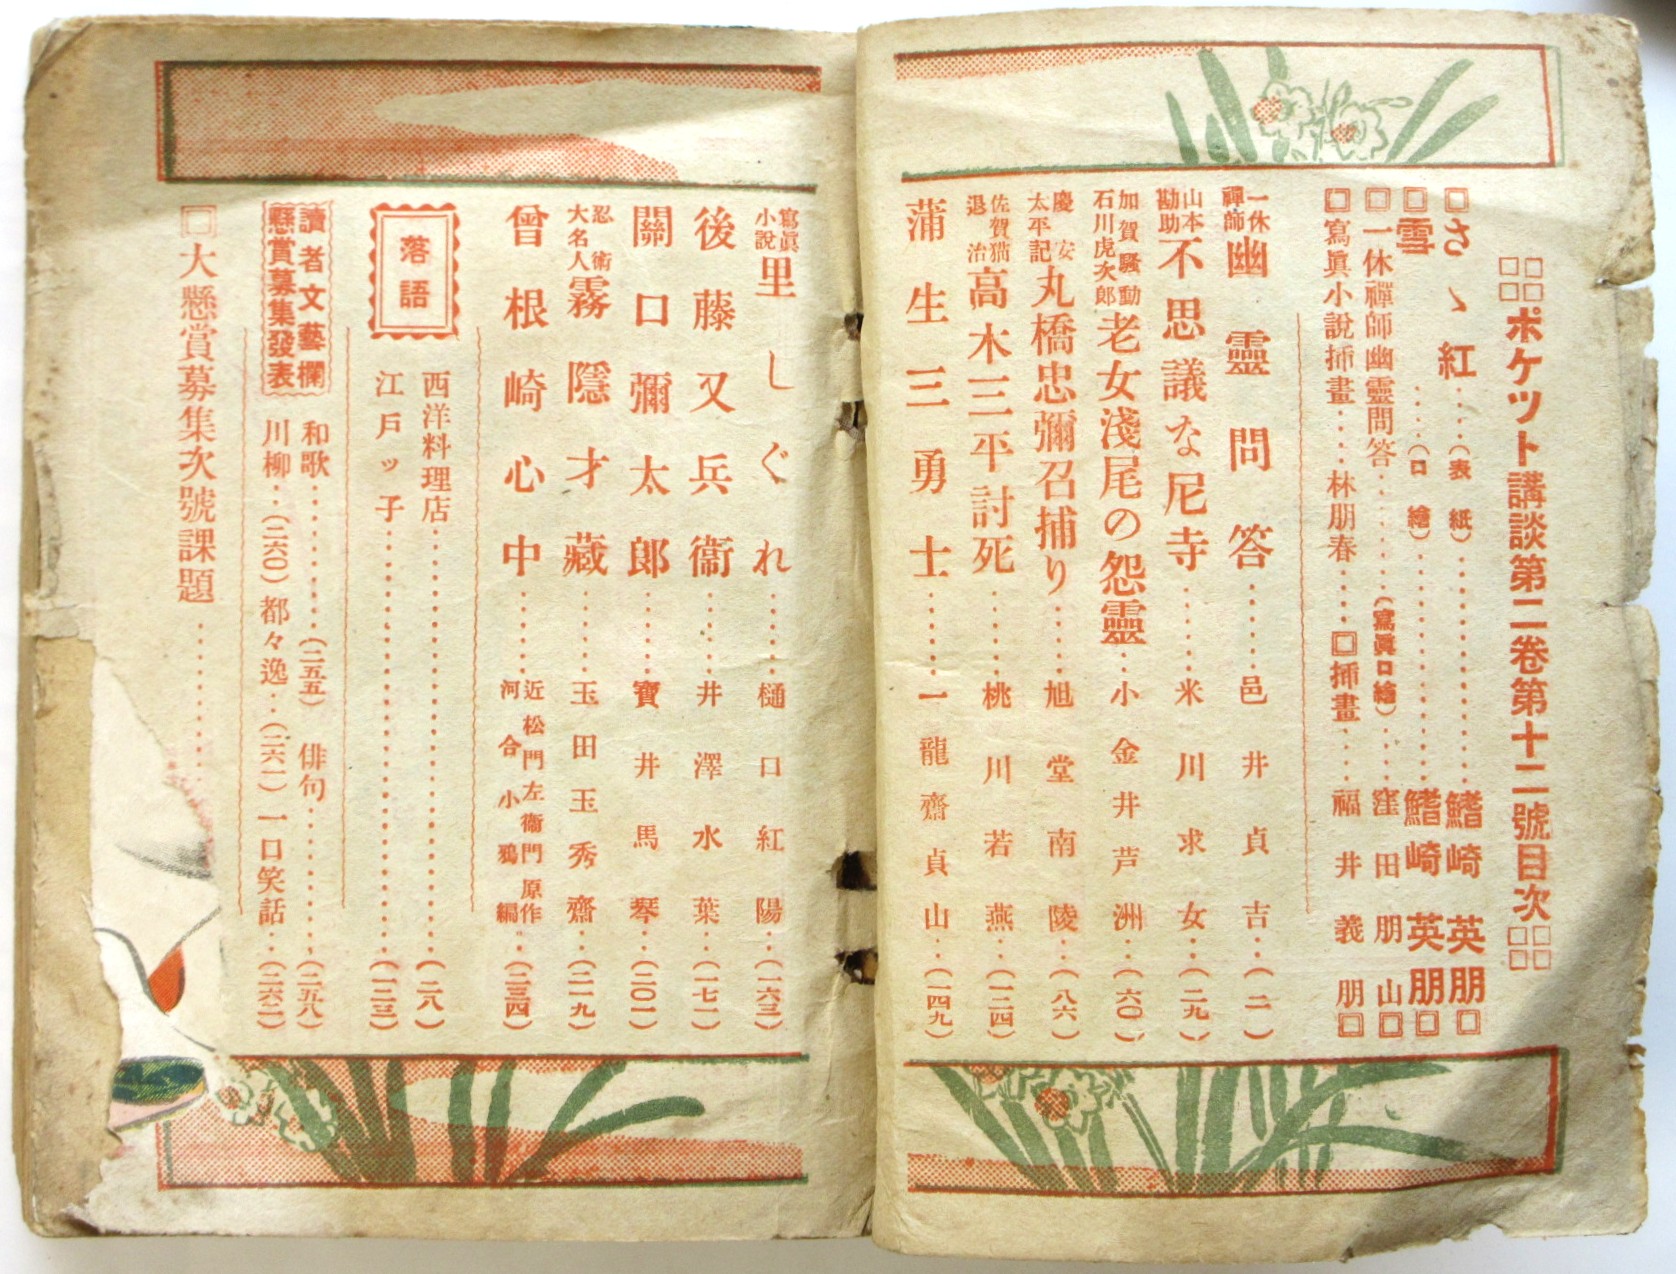 □□□□ポケツト講談第二卷第十二號目次□□□□
□さゝ紅……(表紙)……鰭崎英朋□
□雪……(口繪)……鰭崎英朋□
□一休禪師幽靈問答……(寫眞口繪)……窪田朋山□
□寫眞小說揷畫……林朋春……□揷畫……福井義朋□
一休禪師 幽靈問答……邑井貞吉……(一)
山本勘助 不思議な尼寺……米川求女……(二九)
加賀騷動 石川虎次郎 老女淺尾の怨靈……小金井芦洲……(六〇)
慶安太平記 丸橋忠彌召捕り……旭堂南陵……(八六)
佐賀猫退治 高木三平討死……桃川若燕……(一二四)
蒲生三勇士……一龍齋貞山……(一四九)
寫眞小說 里しぐれ……樋口紅陽……(一六三)
後藤又兵衞……井澤水葉……(一七一)
關口彌太郎……寶井馬琴……(二〇一)
忍術大名人 霧隱才藏……玉田玉秀齋……(二一九)
曾根崎心中……近松門左衞門原作 河合小鴉編……(二三四)
落語
西洋料理店……(二八)
江戶ッ子……(一二三)
讀者文藝欄 懸賞募集發表
和歌……(二五五) 俳句……(二五八)
川柳……(二六〇) 都々逸……(二六一) 一口笑話……(二六二)
□大懸賞募集次號課題……